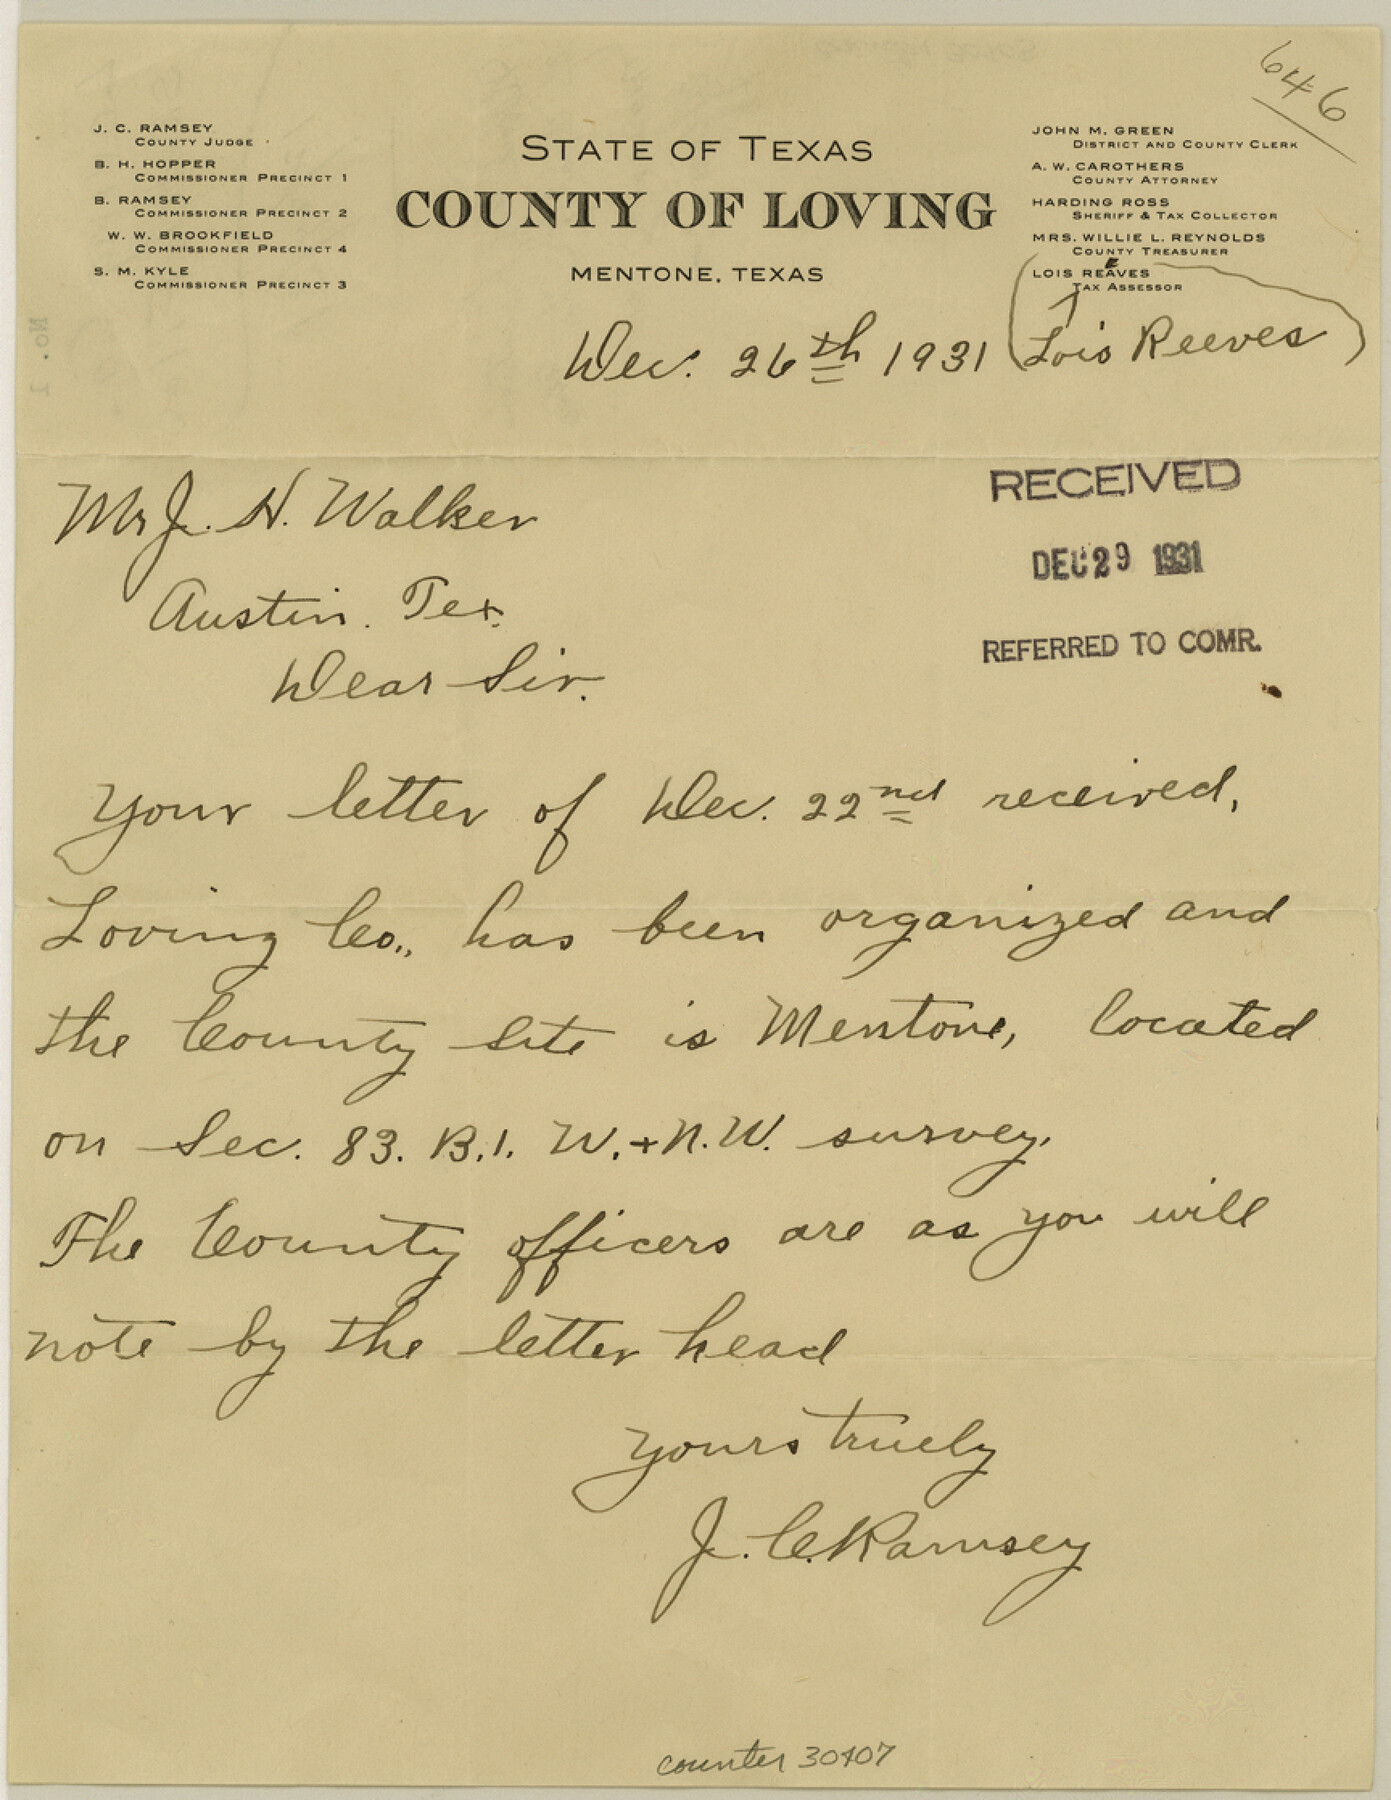 646
J. C. RAMSEY
COUNTY JUDGE
B. H. HOPPER
COMMISSIONER PRECINCT 1
B. RAMSEY
COMMISSIONER PRECINCT 2
W. W. BROOKFIELD
COMMISSIONER PRECINCT 4
S. M. KYLE
COMMISSIONER PRECINCT 3
STATE OF TEXAS
COUNTY OF LOVING
MENTONE, TEXAS
JOHN M. GREEN
DISTRICT AND COUNTY CLERK
A. W. CAROTHERS
COUNTY ATTORNEY
HARDING ROSS
SHERIFF & TAX COLLECTOR
MRS. WILLIE L. REYNOLDS
COUNTY TREASURER
LOIS REAVES
TAX ASSESSOR
Lois Reeves
Dec. 26th 1931
No. 1
RECEIVED
DEC 29 1931
REFERRED TO COMR.
Mr J. H. Walker
Austin. Tex.
Dear Sir.
Your letter of Dec. 22nd received,
Loving Co., has been organized and
the County Site is Mentone, located
on Sec. 83. B.1. W.+N.W. survey.
The County officers are as you will
note by the letter head
Yours truely
J. C. Ramsey
counter 30407